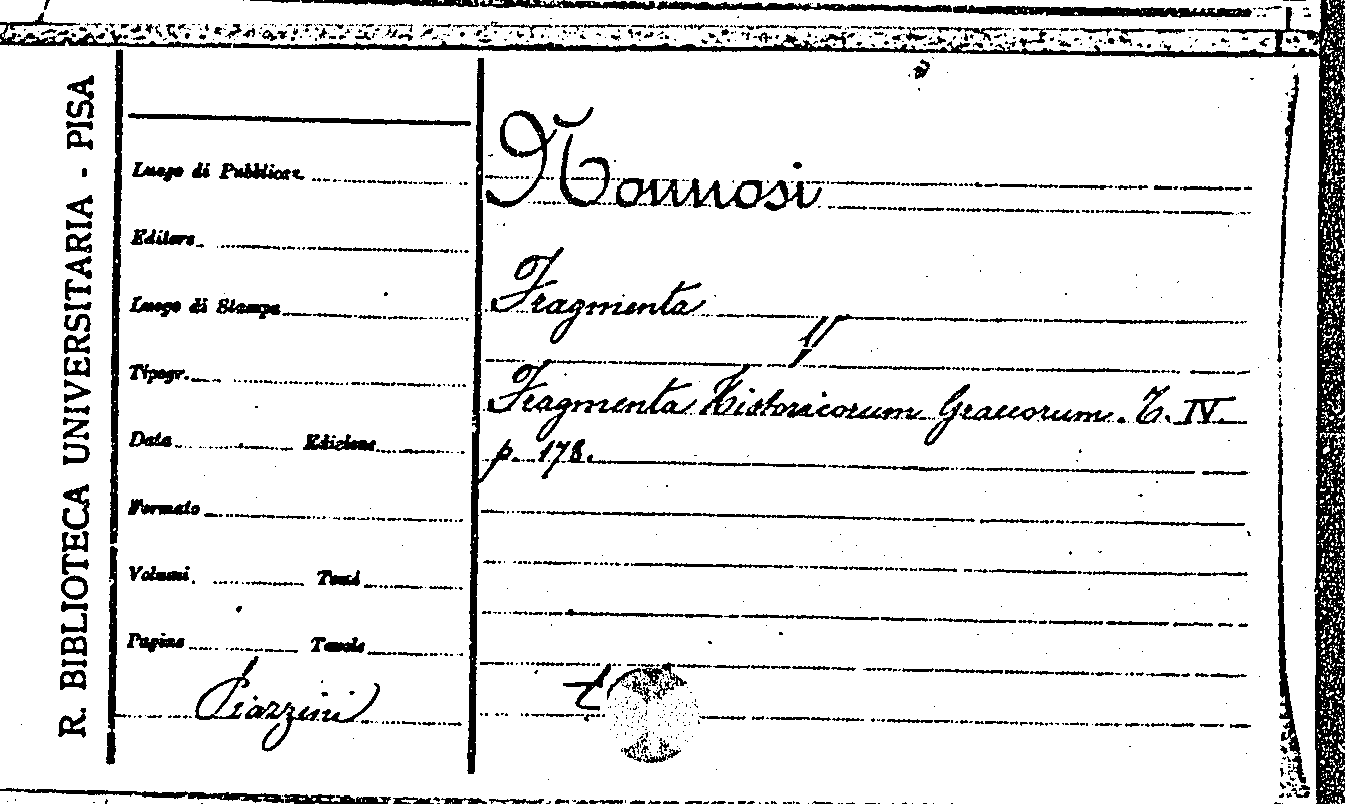 R. BIBLIOTECA UNIVERSITARIA - PISA
Luogo di Pubblicaz.
Editore
Luogo di Stampa
Tipogr.
Data Edizione
Formato
Volumi Tomi
Pagine Tavole
Piazzini
Nonnosi
Fragmenta
Fragmenta Historicorum Graecorum. T. IV.
p. 178.